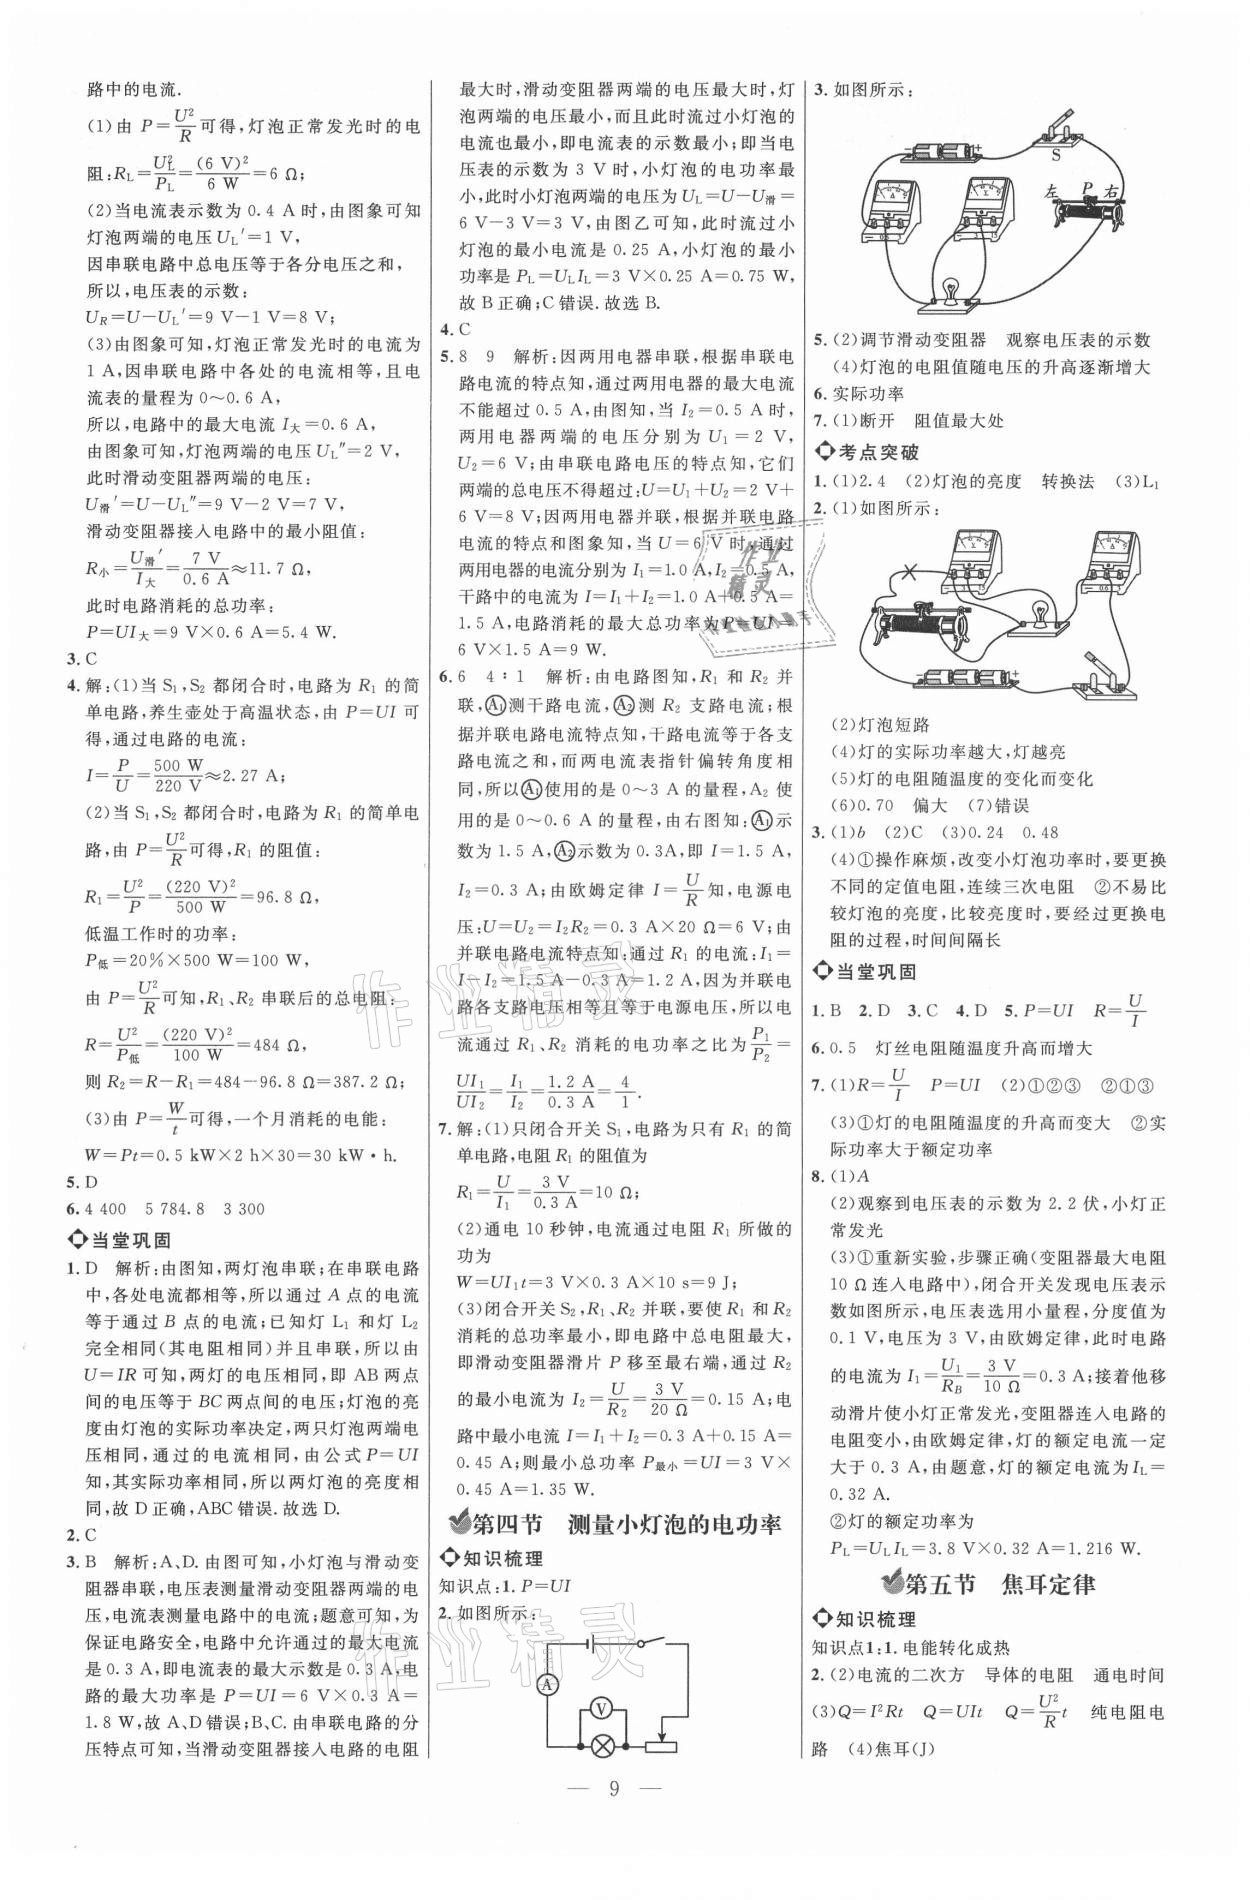 路中的电流.
(1)由 P=U²/R可得,灯泡正常发光时的电
阻:R_L=U_L²/P_L=(6 V)²/6 W=6 Ω;
(2)当电流表示数为 0.4 A时,由图象可知
灯泡两端的电压U_L′=1 V,
因串联电路中总电压等于各分电压之和,
所以,电压表的示数:
U_R=U−U_L′=9 V−1 V=8 V;
(3)由图象可知,灯泡正常发光时的电流为
1 A,因串联电路中各处的电流相等,且电
流表的量程为0~0.6 A,
所以,电路中的最大电流 I大=0.6 A,
由图象可知,灯泡两端的电压U_L″=2 V,
此时滑动变阻器两端的电压:
U滑′=U−U_L″=9 V−2 V=7 V,
滑动变阻器接入电路中的最小阻值:
R小=U滑′/I大=7 V/0.6 A≈11.7 Ω,
此时电路消耗的总功率:
P=UI大=9 V×0.6 A=5.4 W.
3.C
4.解:(1)当 S₁,S₂ 都闭合时,电路为 R₁ 的简
单电路,养生壶处于高温状态,由 P=UI 可
得,通过电路的电流:
I=P/U=500 W/220 V≈2.27 A;
(2)当 S₁,S₂ 都闭合时,电路为 R₁ 的简单电
路,由 P=U²/R可得,R₁ 的阻值:
R₁=U²/P=(220 V)²/500 W=96.8 Ω,
低温工作时的功率:
P低=20%×500 W=100 W,
由 P=U²/R可知,R₁、R₂ 串联后的总电阻:
R=U²/P低=(220 V)²/100 W=484 Ω,
则 R₂=R−R₁=484−96.8 Ω=387.2 Ω;
(3)由 P=W/t可得,一个月消耗的电能:
W=Pt=0.5 kW×2 h×30=30 kW·h.
5.D
6.4 400 5 784.8 3 300
当堂巩固
1.D 解析:由图知,两灯泡串联;在串联电路
中,各处电流都相等,所以通过 A 点的电流
等于通过 B 点的电流;已知灯 L₁ 和灯 L₂
完全相同(其电阻相同)并且串联,所以由
U=IR 可知,两灯的电压相同,即 AB 两点
间的电压等于BC两点间的电压;灯泡的亮
度由灯泡的实际功率决定,两只灯泡两端电
压相同,通过的电流相同,由公式 P=UI
知,其实际功率相同,所以两灯泡的亮度相
同,故 D 正确,ABC 错误.故选 D.
2.C
3.B 解析:A、D.由图可知,小灯泡与滑动变
阻器串联,电压表测量滑动变阻器两端的电
压,电流表测量电路中的电流;题意可知,为
保证电路安全,电路中允许通过的最大电流
是 0.3 A,即电流表的最大示数是 0.3 A,电
路的最大功率是 P=UI=6 V×0.3 A=
1.8 W,故 A、D错误;B、C.由串联电路的分
压特点可知,当滑动变阻器接入电路的电阻
最大时,滑动变阻器两端的电压最大时,灯
泡两端的电压最小,而且此时流过小灯泡的
电流也最小,即电流表的示数最小;即当电
压表的示数为 3 V 时,小灯泡的电功率最
小,此时小灯泡两端的电压为U_L=U−U滑=
6 V−3 V=3 V,由图乙可知,此时流过小
灯泡的最小电流是 0.25 A,小灯泡的最小
功率是 P_L=U_L I_L=3 V×0.25 A=0.75 W,
故 B 正确;C 错误.故选 B.
4.C
5.8 9 解析:因两用电器串联,根据串联电
路电流的特点知,通过两用电器的最大电流
不能超过 0.5 A,由图知,当 I₂=0.5 A 时,
两用电器两端的电压分别为 U₁=2 V,
U₂=6 V;由串联电路电压的特点知,它们
两端的总电压不得超过:U=U₁+U₂=2 V+
6 V=8 V;因两用电器并联,根据并联电路
电流的特点和图象知,当 U=6 V 时,通过
两用电器的电流分别为 I₁=1.0 A,I₂=0.5 A,
干路中的电流为 I=I₁+I₂=1.0 A+0.5 A=
1.5 A,电路消耗的最大总功率为 P=UI=
6 V×1.5 A=9 W.
6.6 4∶1 解析:由电路图知,R₁ 和 R₂ 并
联,Ⓐ₁测干路电流,Ⓐ₂测 R₂ 支路电流;根
据并联电路电流特点知,干路电流等于各支
路电流之和,而两电流表指针偏转角度相
同,所以Ⓐ₁使用的是 0~3 A 的量程,A₂ 使
用的是 0~0.6 A 的量程,由右图知:Ⓐ₁示
数为 1.5 A,Ⓐ₂示数为 0.3A,即 I=1.5 A,
I₂=0.3 A;由欧姆定律 I=U/R知,电源电
压:U=U₂=I₂R₂=0.3 A×20 Ω=6 V;由
并联电路电流特点知:通过 R₁ 的电流:I₁=
I−I₂=1.5 A−0.3 A=1.2 A,因为并联电
路各支路电压相等且等于电源电压,所以电
流通过 R₁、R₂ 消耗的电功率之比为P₁/P₂=
UI₁/UI₂=I₁/I₂=1.2 A/0.3 A=4/1.
7.解:(1)只闭合开关 S₁,电路为只有 R₁ 的简
单电路,电阻 R₁ 的阻值为
R₁=U/I₁=3 V/0.3 A=10 Ω;
(2)通电 10 秒钟,电流通过电阻 R₁ 所做的
功为
W=UI₁t=3 V×0.3 A×10 s=9 J;
(3)闭合开关S₂,R₁、R₂ 并联,要使 R₁ 和 R₂
消耗的总功率最小,即电路中总电阻最大,
即滑动变阻器滑片 P 移至最右端,通过 R₂
的最小电流为 I₂=U/R₂=3 V/20 Ω=0.15 A;电
路中最小电流 I=I₁+I₂=0.3 A+0.15 A=
0.45 A;则最小总功率 P最小=UI=3 V×
0.45 A=1.35 W.
第四节 测量小灯泡的电功率
知识梳理
知识点:1.P=UI
2.如图所示:
A
V
3.如图所示:
S
左 P 右
5.(2)调节滑动变阻器 观察电压表的示数
(4)灯泡的电阻值随电压的升高逐渐增大
6.实际功率
7.(1)断开 阻值最大处
考点突破
1.(1)2.4 (2)灯泡的亮度 转换法 (3)L₁
2.(1)如图所示:
(2)灯泡短路
(4)灯的实际功率越大,灯越亮
(5)灯的电阻随温度的变化而变化
(6)0.70 偏大 (7)错误
3.(1)b (2)C (3)0.24 0.48
(4)①操作麻烦,改变小灯泡功率时,要更换
不同的定值电阻,连续三次电阻 ②不易比
较灯泡的亮度,比较亮度时,要经过更换电
阻的过程,时间间隔长
当堂巩固
1.B 2.D 3.C 4.D 5.P=UI R=U/I
6.0.5 灯丝电阻随温度升高而增大
7.(1)R=U/I P=UI (2)①②③ ②①③
(3)①灯的电阻随温度的升高而变大 ②实
际功率大于额定功率
8.(1)A
(2)观察到电压表的示数为 2.2 伏,小灯正
常发光
(3)①重新实验,步骤正确(变阻器最大电阻
10 Ω连入电路中),闭合开关发现电压表示
数如图所示,电压表选用小量程,分度值为
0.1 V,电压为 3 V,由欧姆定律,此时电路
的电流为 I₁=U₁/R_B=3 V/10 Ω=0.3 A;接着他移
动滑片使小灯正常发光,变阻器连入电路的
电阻变小,由欧姆定律,灯的额定电流一定
大于 0.3 A,由题意,灯的额定电流为I_L=
0.32 A.
②灯的额定功率为
P_L=U_L I_L=3.8 V×0.32 A=1.216 W.
第五节 焦耳定律
知识梳理
知识点1:1.电能转化成热
2.(2)电流的二次方 导体的电阻 通电时间
(3)Q=I²Rt Q=UIt Q=U²/R t 纯电阻电
路 (4)焦耳(J)
— 9 —
作业精灵
作业精灵
作业
精灵